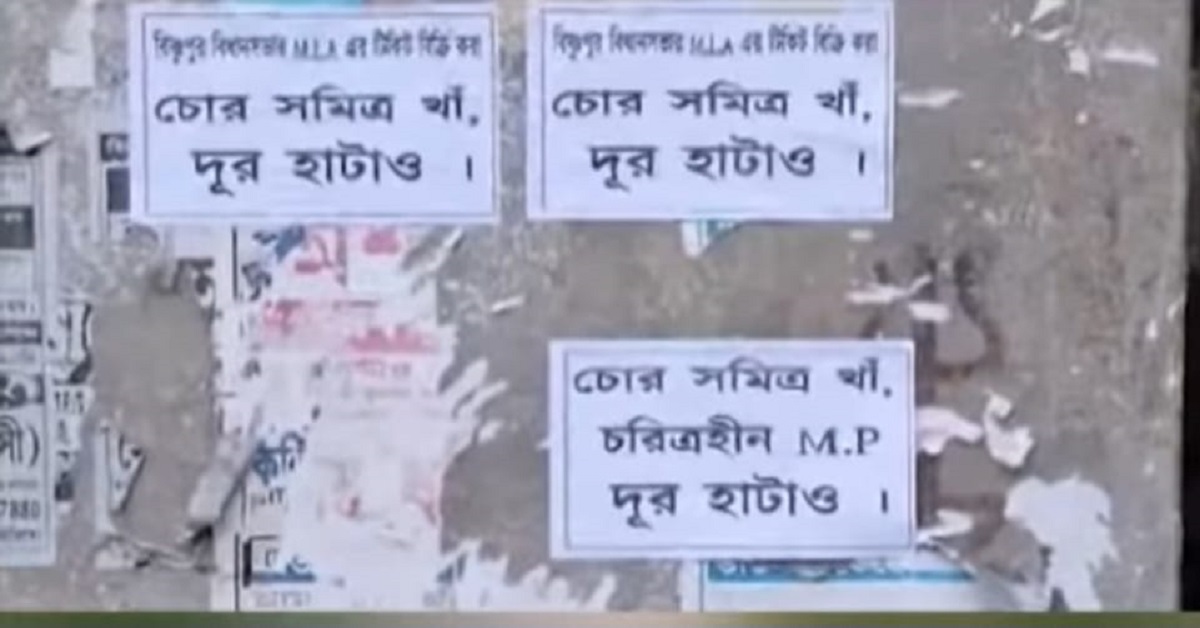 বিষ্ণুপুর বিধানসভার M.L.A এর টিকিট বিক্রি করা
চোর সমিত্র খাঁ,
দূর হাটাও ।
বিষ্ণুপুর বিধানসভার M.L.A এর টিকিট বিক্রি করা
চোর সমিত্র খাঁ,
দূর হাটাও ।
চোর সমিত্র খাঁ,
চরিত্রহীন M.P
দূর হাটাও ।
7880